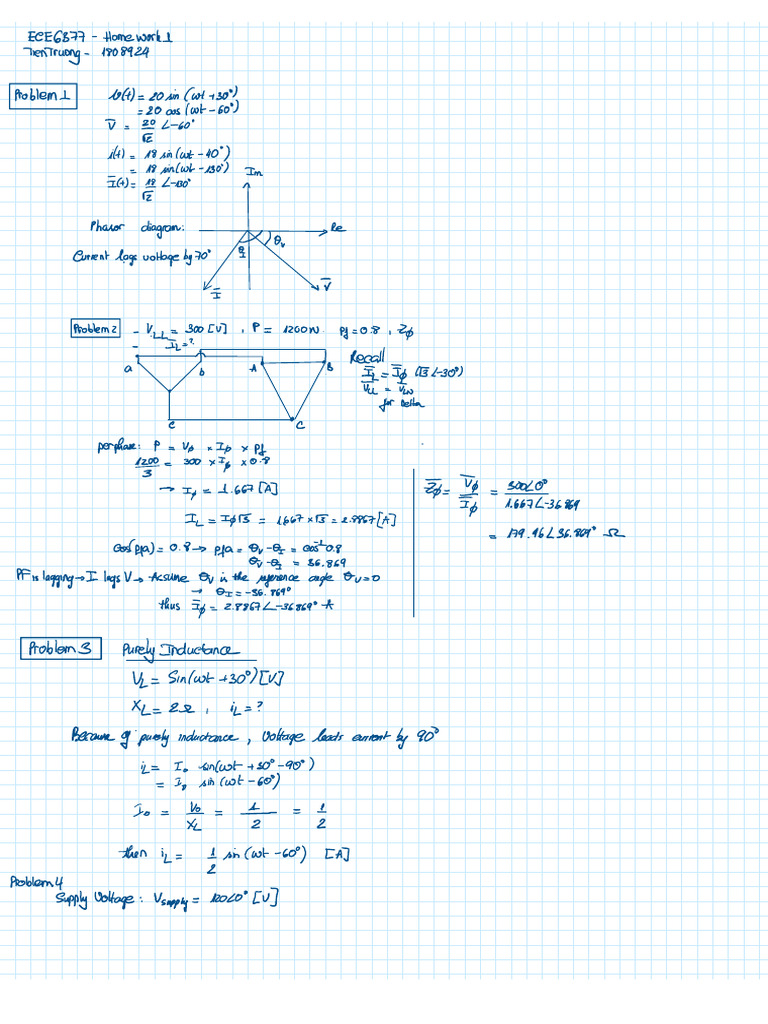 ECE6377 - Homework 1
Tien Truong - 1808924
Problem 1
v(t) = 20 sin (wt +30°)
= 20 cos (wt - 60°)
V̅ = 20/√2 ∠-60°
i(t) = 18 sin(wt - 40°)
= 18 sin(wt - 130°)
I̅(t) = 18/√2 ∠-130°
Im
Phasor diagram:
Re
θI
θv
Current lags voltage by 70°
I̅
V̅
Problem 2
- VLL = 300 [V] , P = 1200W. Pf = 0.8 , Zϕ
- IL = ?
a
b
A
B
c
C
Recall
I̅L = I̅ϕ (√3 ∠-30°)
V̅LL = V̅LN
for Delta
per phase: P = Vϕ × Iϕ × Pf
1200/3 = 300 × Iϕ × 0.8
→ Iϕ = 1.667 [A]
IL = Iϕ√3 = 1.667 × √3 = 2.8867 [A]
cos(pfa) = 0.8 → pfa = θv - θI = cos⁻¹ 0.8
θv - θI = 36.869
PF is lagging → I lags V → Assume θv is the reference angle θv = 0
→ θI = -36.869°
thus I̅ϕ = 2.8867∠-36.869° A
Z̅ϕ = V̅ϕ/I̅ϕ = 300∠0°/1.667∠-36.869
= 179.96∠36.869° Ω
Problem 3
Purely Inductance
VL = Sin(wt +30°) [V]
XL = 2Ω , iL = ?
Because of purely inductance, Voltage leads current by 90°
iL = I₀ sin(wt +30° - 90°)
= I₀ sin (wt - 60°)
I₀ = V₀/XL = 1/2 = 1/2
then iL = 1/2 sin (wt - 60°) [A]
Problem 4
Supply Voltage: Vsupply = 120∠0° [V]